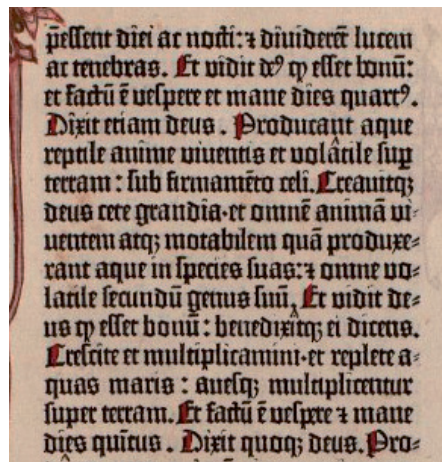 p̄essent diei ac nocti: ⁊ diuiderēt lucem
ac tenebras. Et vidit deꝰ ꝙ esset bonū:
et factū ē vespere et mane dies quartꝰ.
Dixit etiam deus. Producant aque
reptile anime viuentis et volatile sup̄
terram: sub firmamēto celi. Creauitqꝫ
deus cete grandia·et omnē animā vi⸗
uentem atqꝫ motabilem quā produxe⸗
rant aque in species suas: ⁊ omne vo⸗
latile secundū genus suū. Et vidit de⸗
us ꝙ esset bonū: benedixitqꝫ ei dicens.
Crescite et multiplicamini·et replete a⸗
quas maris: auesqꝫ multiplicentur
super terram. Et factū ē vesꝑe ⁊ mane
dies quītus. Dixit quoqꝫ deus. Pro⸗